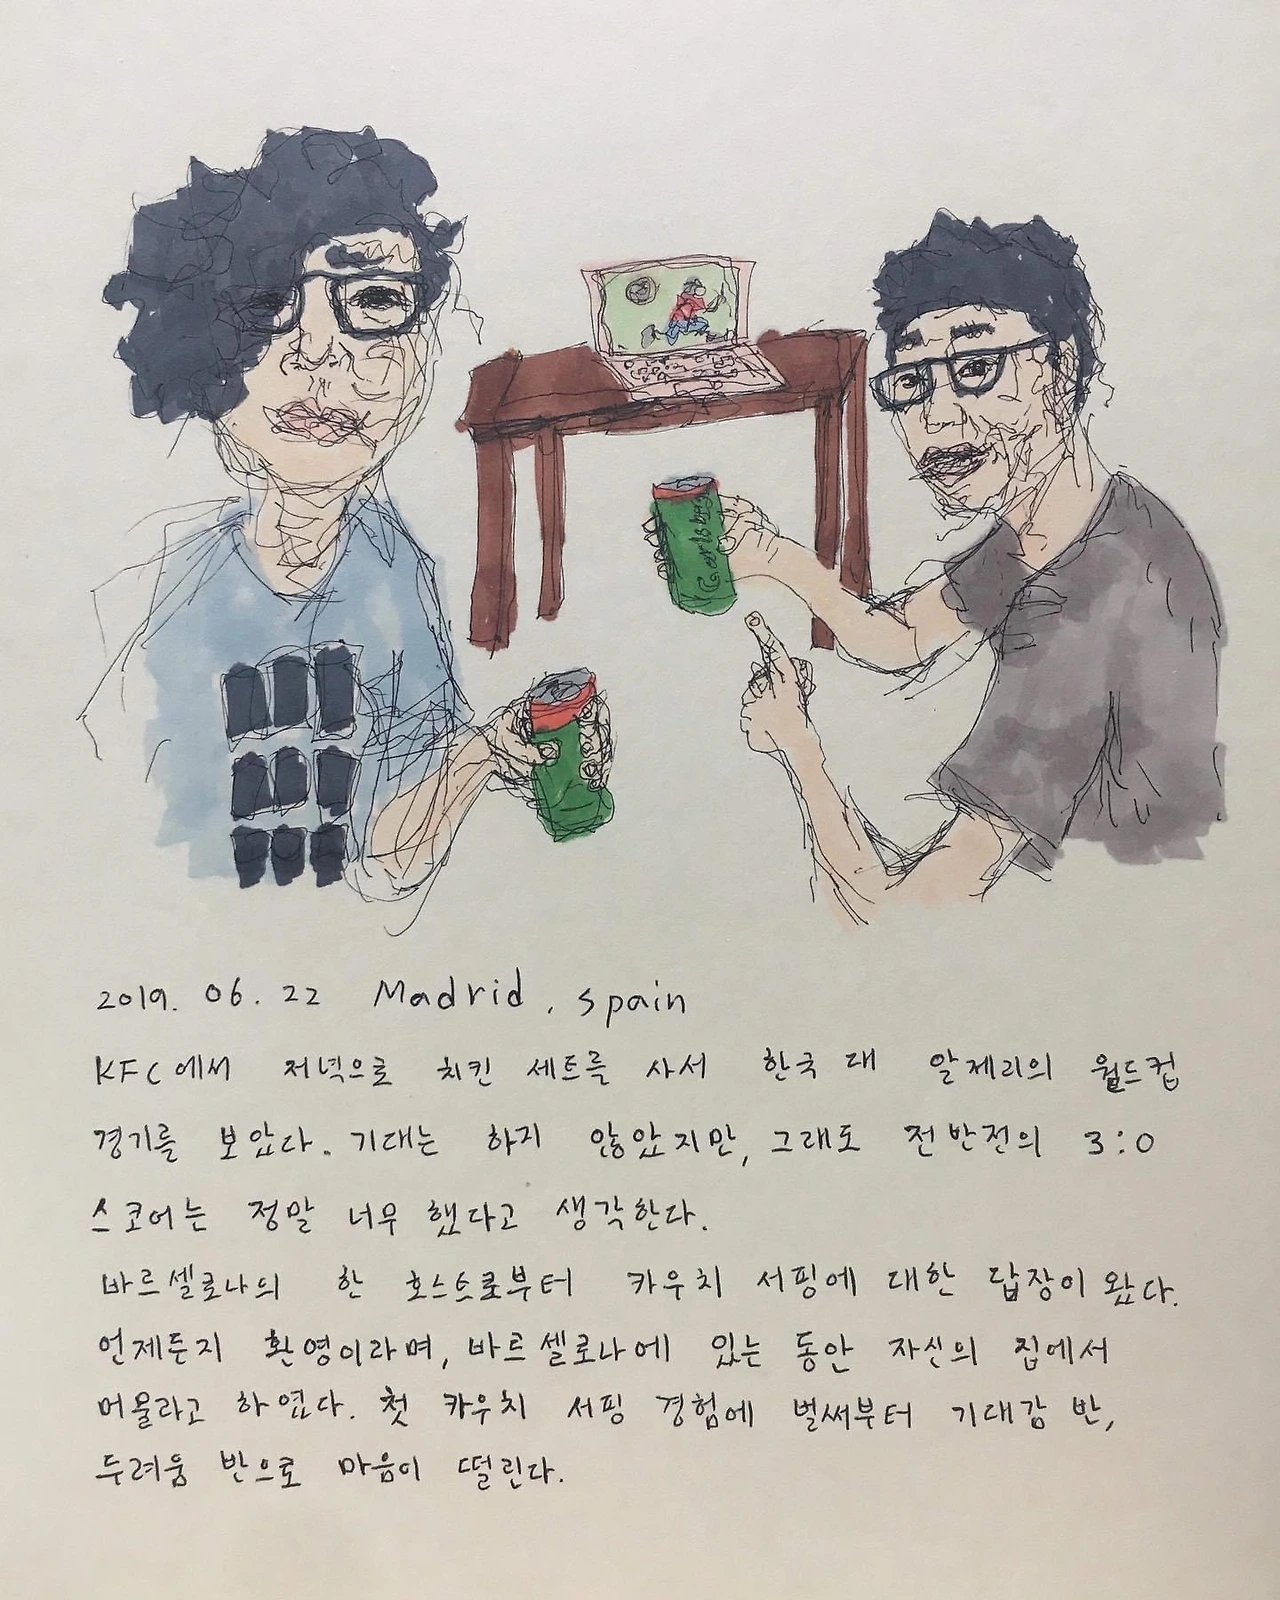 Carlsberg
2019. 06. 22 Madrid, spain
KFC에서 저녁으로 치킨 세트를 사서 한국 대 알제리의 월드컵
경기를 보았다. 기대는 하지 않았지만, 그래도 전반전의 3:0
스코어는 정말 너무 했다고 생각한다.
바르셀로나의 한 호스트로부터 카우치 서핑에 대한 답장이 왔다.
언제든지 환영이라며, 바르셀로나에 있는 동안 자신의 집에서
머물라고 하였다. 첫 카우치 서핑 경험에 벌써부터 기대감 반,
두려움 반으로 마음이 떨린다.